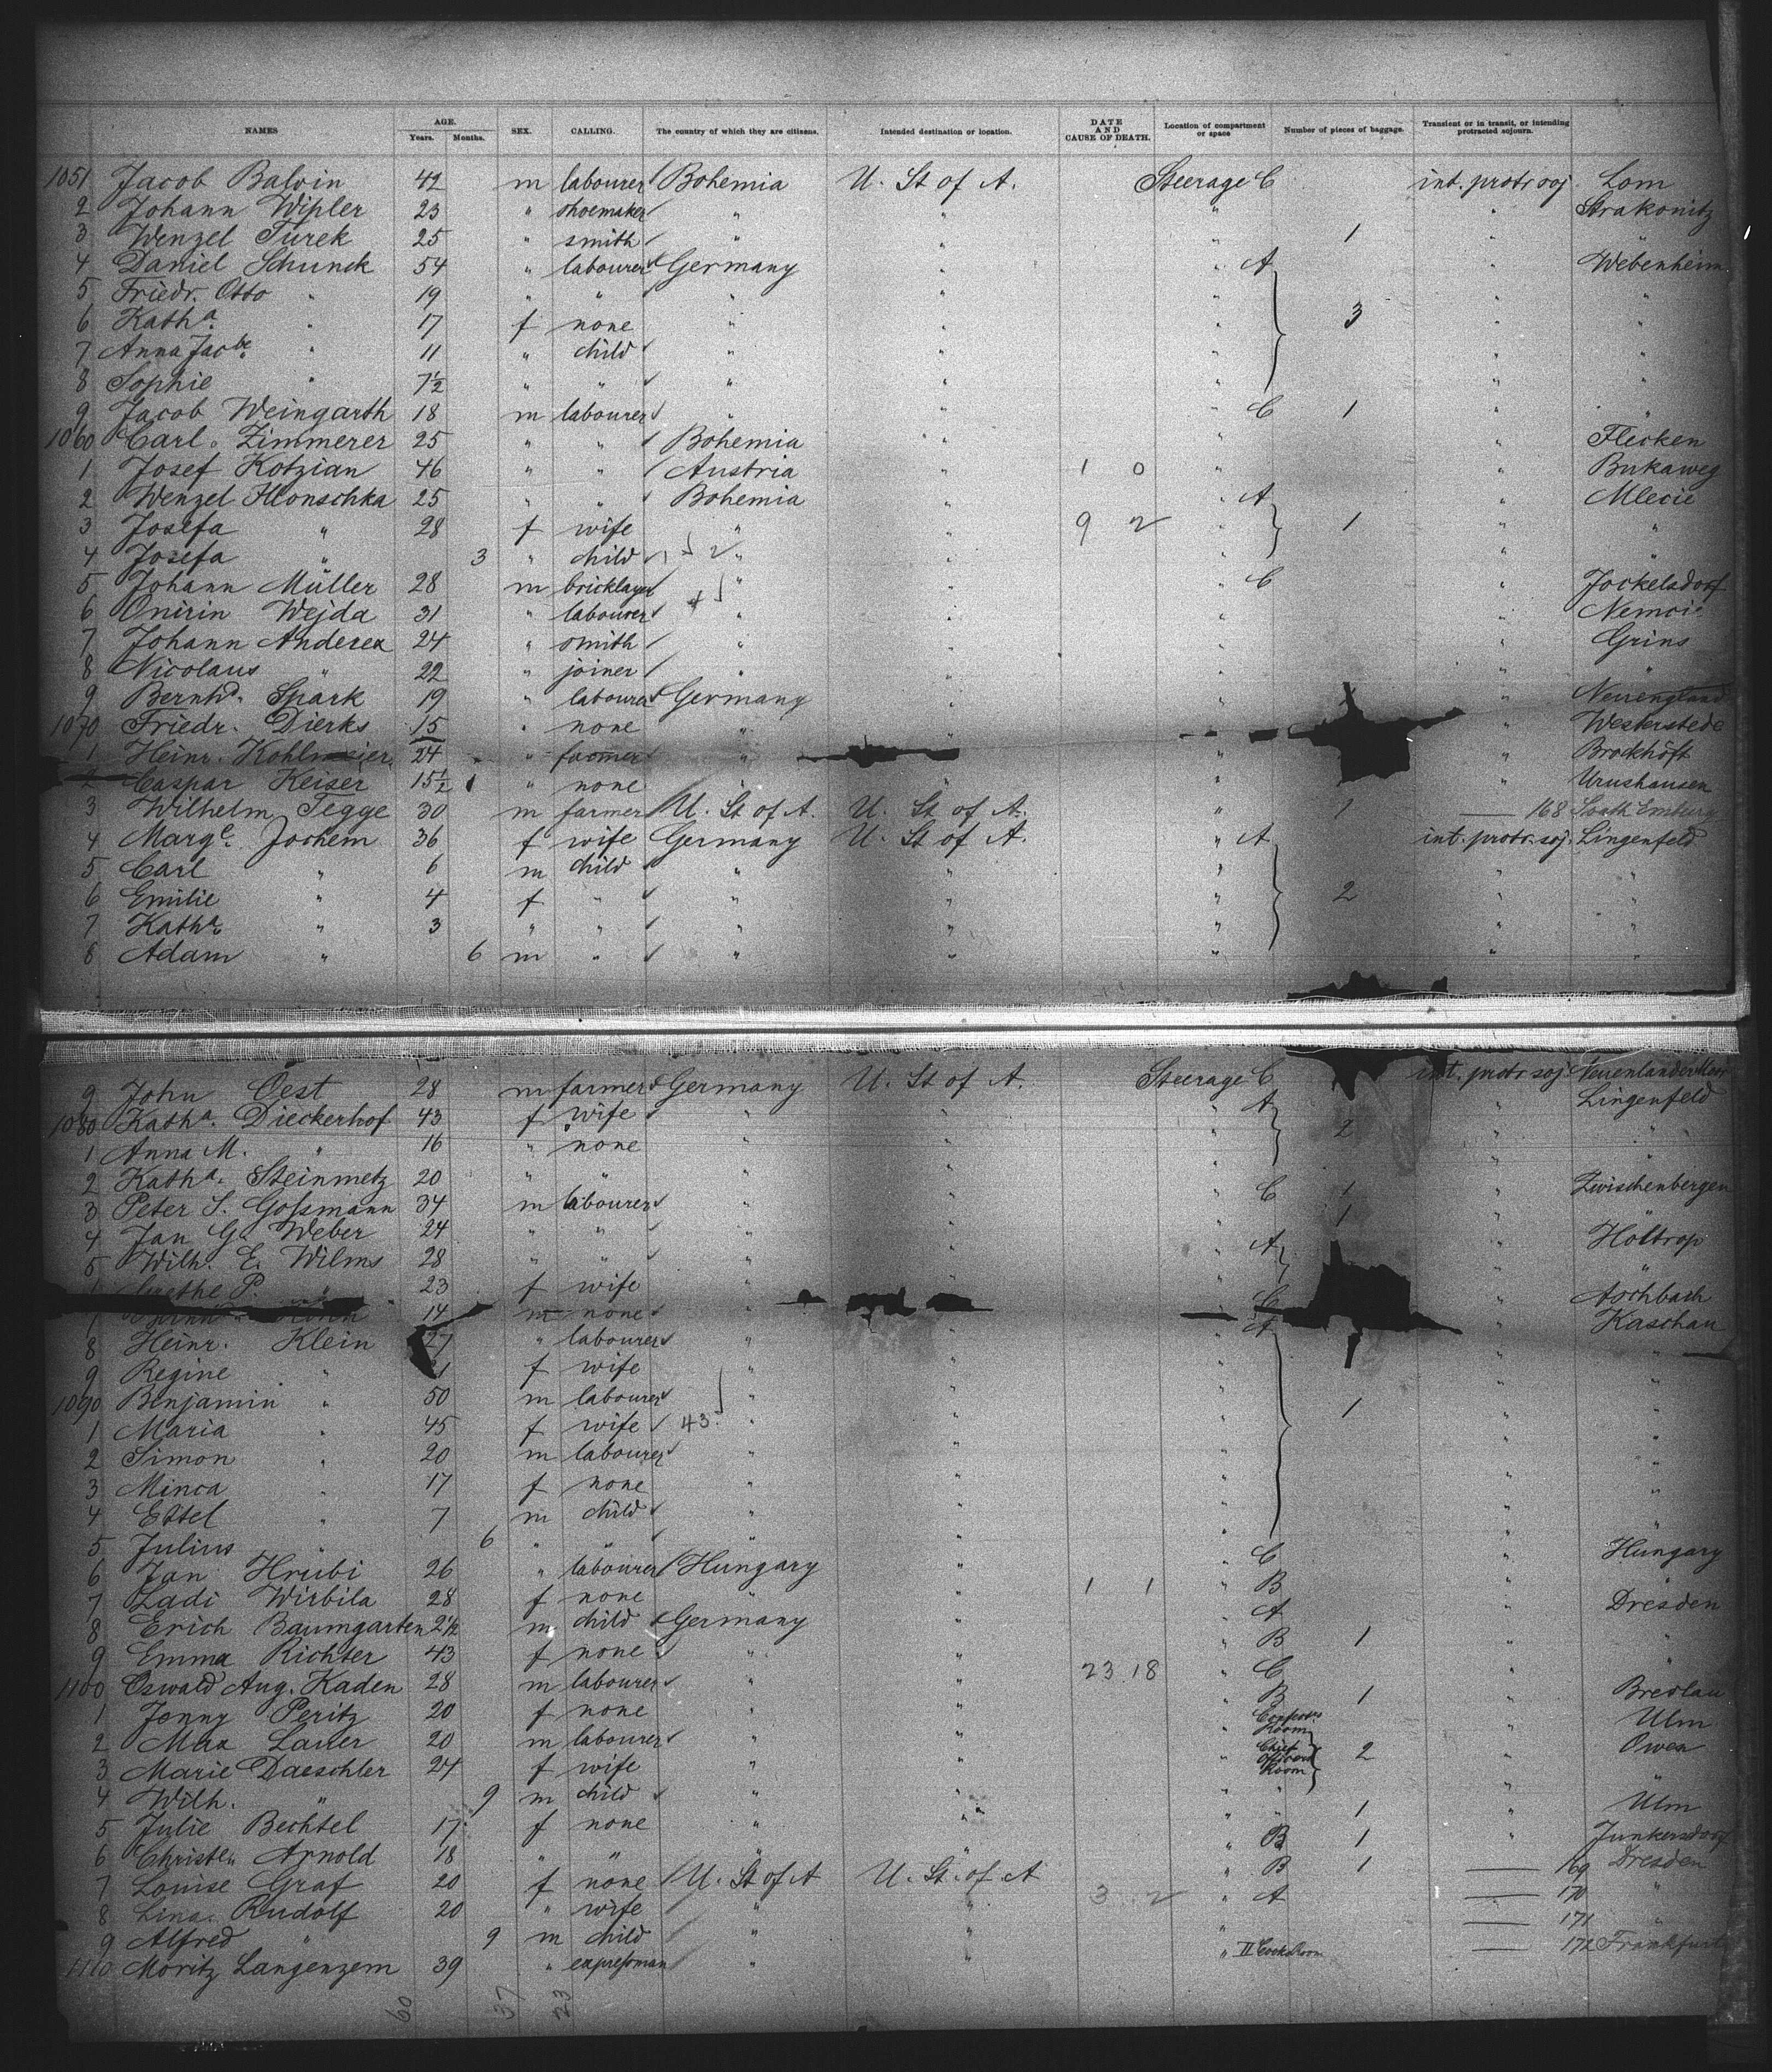 NAMES AGE. Years. Months. SEX. CALLING. The country of which they are citizens. Intended destination or location. DATE AND CAUSE OF DEATH. Location of compartment or space Number of pieces of baggage. Transient or in transit, or intending protracted sojourn.
1051 Jacob Balvin 42 m labourer Bohemia U. St of A. Steerage C int. protr soj. Lom
2 Johann Wipler 23 " shoemaker " " " " Strakonitz
3 Wenzel Turek 25 " smith " " " 1 " "
4 Daniel Schunck 54 " labourer Germany " " A " Webenheim
5 Friedr. Otto " 19 " " " " " " "
6 Katha. " 17 f none " " " 3 " "
7 Anna Jacbe. " 11 " child " " " " "
8 Sophie " 7½ " " " " " " "
9 Jacob Weingarth 18 m labourer " " " C 1 " "
1060 Carl Zimmerer 25 " " Bohemia " " " Flecken
1 Josef Kotzian 46 " " Austria " 1 0 " " Bukaweg
2 Wenzel Hlonschka 25 " " Bohemia " " A " Mlecie
3 Josefa " 28 f wife " " 9 2 " 1 " "
4 Josefa " 3 " child 2 " " " " "
5 Johann Müller 28 m bricklayer " " " C " Jockelsdorf
6 Onirin Wejda 31 " labourer 4 " " " "
7 Johann Anderea 24 " smith " " " " Grins
8 Nicolaus " 22 " joiner " " " " "
9 Bernhd. Spark 19 " labourer Germany " " " Neuengland
1070 Friedr. Dierks 15 " none " " " Westerstede
1 Heinr. Kohlmeier 24 " farmer " " Brockhöft
2 Caspar Keiser 15½ " none " " " Urushausen
3 Wilhelm Tegge 30 m farmer U. St of A. U. St of A. " 1 — 168 South
4 Margc. Jochem 36 f wife Germany U. St of A. " A int. protr. soj. Lingenfeld
5 Carl " 6 m child " " " " "
6 Emilie " 4 f " " " " 2 " "
7 Katha. " 3 " " " " " " "
8 Adam " 6 m " " " " " "
9 John Oest 28 m farmer Germany U. St of A. Steerage C int. protr soj.
1080 Katha. Dieckerhof 43 f wife " " " A 2 " Lingenfeld
1 Anna M. " 16 " none " " " " "
2 Katha. Steinmetz 20 " " " " " " "
3 Peter S. Goßmann 34 m labourer " " " C 1 " Zwischenbergen
4 Jan G. Weber 24 " " " " " 1 " "
5 Wilh. E. Wilms 28 " " " " " A " Holtrop
Grethe P. " 23 f wife " " " "
14 m none " C " Aschbach
8 Heinr. Klein 27 " labourer " " " A " Kaschau
9 Regine " f wife " " " " "
1090 Benjamin " 50 m labourer " " " 1 " "
1 Maria " 45 f wife 43 " " " " "
2 Simon " 20 m labourer " " " " "
3 Minca " 17 f none " " " " "
4 Ettel " 7 m child " " " " "
5 Julius " 6 " " " " " " "
6 Jan Hrubi 26 " labourer Hungary " " C " Hungary
7 Ladi Wirbila 28 f none " " 1 1 " B " "
8 Erich Baumgarten 2½ m child Germany " " A " Dresden
9 Emma Richter 43 f none " " " B 1 " "
1100 Oswald Aug. Kaden 28 m labourer " " 23 18 " C " "
1 Jenny Peritz 20 f none " " " B 1 " Breslau
2 Max Lauer 20 m labourer " " " Room " Ulm
3 Marie Daeschler 24 f wife " " " Chief Officers Room 2 " Owen
4 Wilh. " 9 m child " " " " " "
5 Julie Bechtel 17 f none " " " " 1 " Ulm
6 Christn. Arnold 18 " " " " " B 1 " Junkersdorf
7 Louise Graf 20 f none U. St of A U. St. of A " B 1 — 169 Dresden
8 Lina Rudolf 20 " wife " " 3 2 " A — 170 "
9 Alfred " 9 m child " " " — 171 "
1110 Moritz Langenzem 39 " expreßman " " " II Cooks Room — 172 Frankfurt
60 37 23